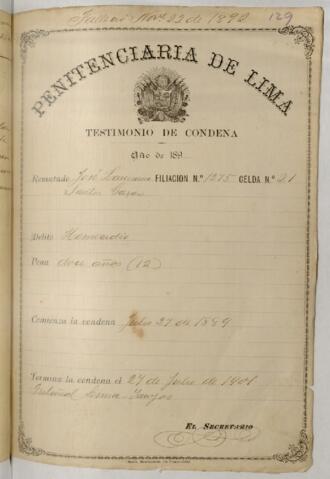 Nov. 22 de 1892
129
PENITENCIARIA DE LIMA
TESTIMONIO DE CONDENA
Año de 189
Rematado José FILIACION N.º 1275 CELDA N.º 21
Santos
Delito Homicidio
Pena doce años (12)
Comienza la condena Julio 27 de 1889
Termina la condena el 27 de Julio de 1901
Tribunal
EL SECRETARIO